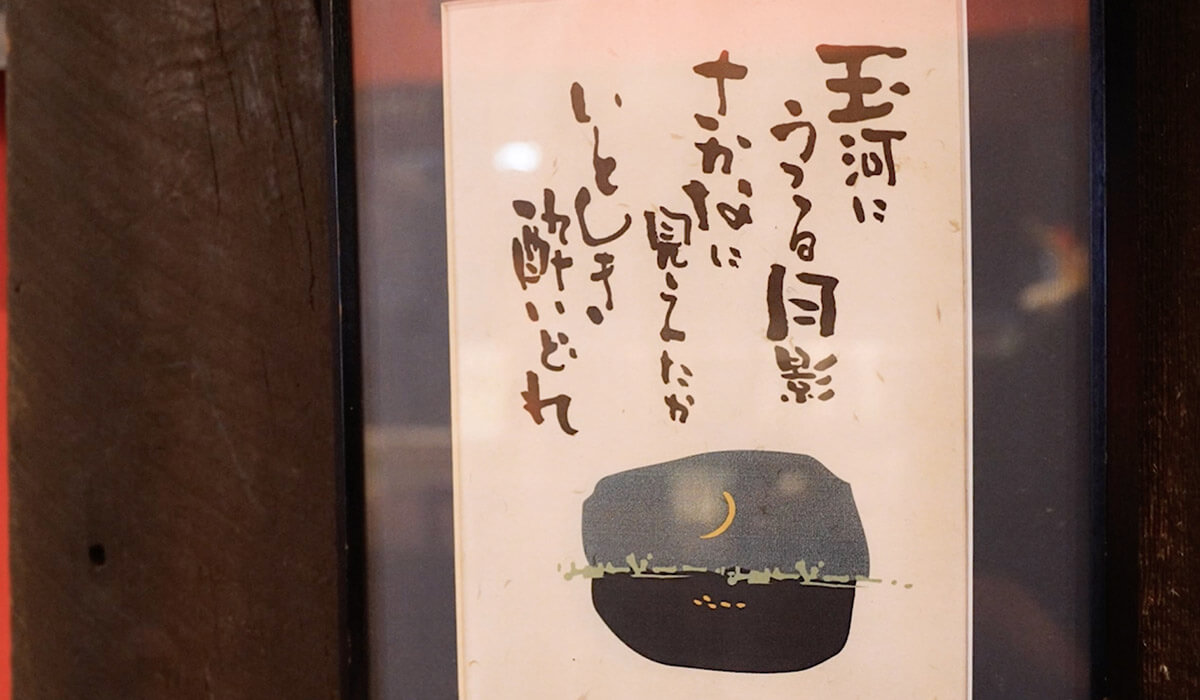 玉河に
うつる月影
さかなに
見えたか
いとしき
酔いどれ